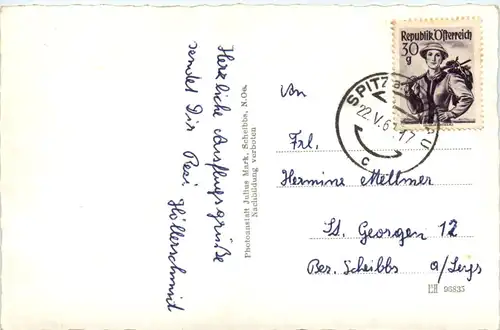 Herzliche Ausflugsgrüße
sendet Dir Resi Höllerschmid
Photoanstalt Julius Mark, Scheibbs, N.Oe.
Nachbildung verboten
Republik Österreich
30
g
SPITZ
22.V.6
17
c
An
Frl.
Hermine Mellmer
St. Georgen 12
Bez. Scheibbs a/Leys
96835